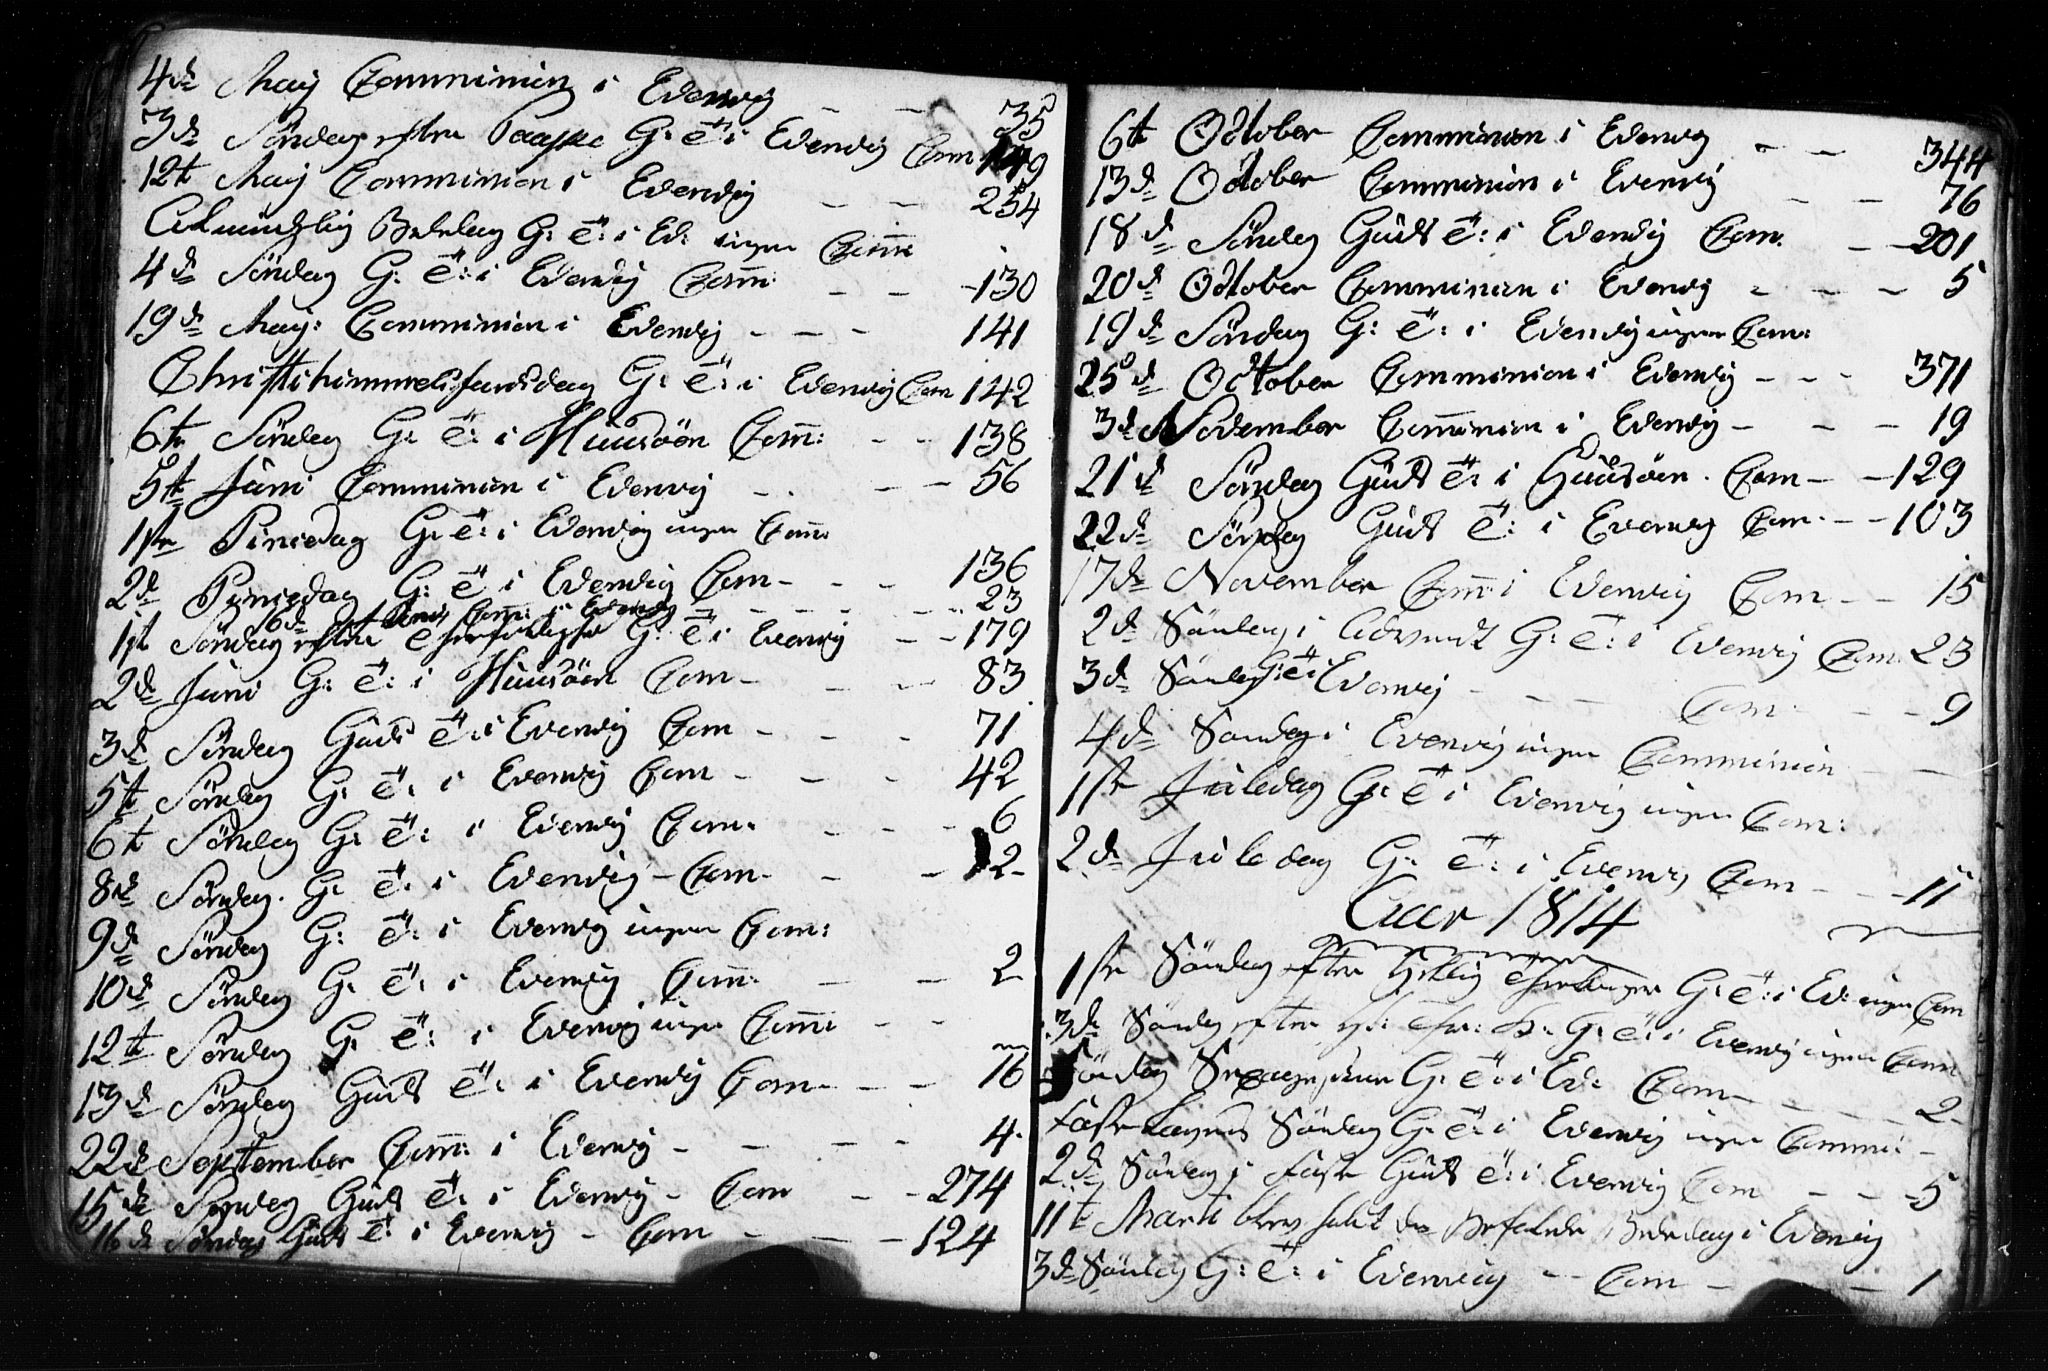 4de Maij Communion i Evenvig - - 35
3de Söndag efter Paaske G: T: i Evenvig Com 149
12te Maij Communion i Evenvig - - 254
Almindelig Bededag G: T: i Ev: ingen Com̅:
4de Söndag G: T: i Evenvig Com̅: - - 130
19de Maij: Communion i Evenvig - - - 141
Christi himmelfartsdag G: T: i Evenvig Com 142
6te Söndag G: T: i Huusöen Com̅: - - 138
5te Juni Communion i Evenvig - - - 56
1ste Pinsedag G: T: i Evenvig ingen Com̅:
2de Pinsedag G: T: i Evenvig Com - - - 136
16de Juni Com̅: i Evenvig - - - 23
1ste Söndag efter G: T: i Evenvig - - 179
2de Juni G: T: i Huusöen Com - - - 83
3de Söndag Guds T: i Evenvig Com - - - 71
5te Söndag G: T: i Evenvig Com - - - 42
6te Söndag G: T: i Evenvig Com: - - - 6
8de Söndag. G: T: i Evenvig - Com - - - 2
9de Söndag G: T: i Evenvig ingen Com:
10de Söndag G: T: i Evenvig Com̅: - - 2
12te Söndag G: T: i Evenvig ingen Com̅: - -
13de Söndag Guds T: i Evenvig Com - - - 76
22de September Com̅: i Evenvig - - - - 4
15de Söndag Guds T: i Evenvig - Com - - 274
16de Söndag Guds T: i Evenvig - Com - - - 124
6te October Communion i Evenvig - - 344
13de October Communion i Evenvig - - 76
18de Söndag Guds T: i Evenvig Com: - - 201
20de October Communion i Evenvig - - - 5
19de Söndag G: T: i Evenvig ingen Com:
25de October Communion i Evenvig - - - 371
3de November Com̅union i Evenvig - - - 19
21de Söndag Guds T: i Huusöen. Com - - 129
22de Söndag Guds T: i Evenvig Com - - 103
17de November Com̅: i Evenvig Com - - 15
2de Söndag i Advendt G: T: i Evenvig Com 23
3de Söndag G: T: i Evenvig - - - Com - - 9
4de Söndag i Evenvig ingen Communion - -
1ste Juledag G: T: i Evenvig ingen Com:
2de Juledag G: T: i Evenvig Com - - 11
Aar 1814
1ste Söndag efter Hellig G: T: i Ev: ingen Com
3de Söndag efter G: T: i Evenvig ingen Com̅
Söndag G: T: i Ev: Com - - - 2
Fastelagns Söndag G: T: i Evenvig ingen Commu: -
2de Söndag i Faste Guds T: i Evenvig Com - - - 5
11te Marti blev holdt den Befalede Bededag i Evenvig
3de Söndag G: T: i Evenvig - - Com - - 1